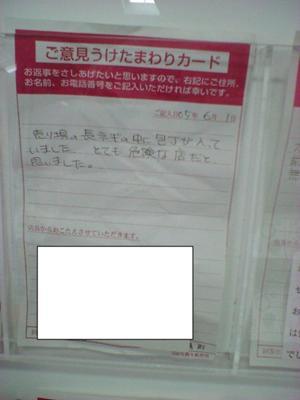 ご意見うけたまわりカード
お返事をさしあげたいと思いますので、右記にご住所、
お名前、お電話番号をご記入いただければ幸いです。
ご記入日 05年 6月 1日
売り場の長ネギの中に包丁が入って
いました。とても危険な店だと
思いました。
店長からおこたえさせていただきます。